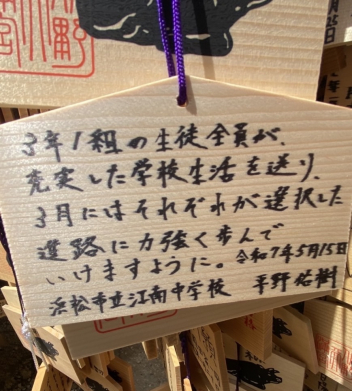 3年1組の生徒全員が、
充実した学校生活を送り、
3月にはそれぞれが選択した
進路に力強く歩んで
いけますように。令和7年5月15日
浜松市立江南中学校 平野佑樹